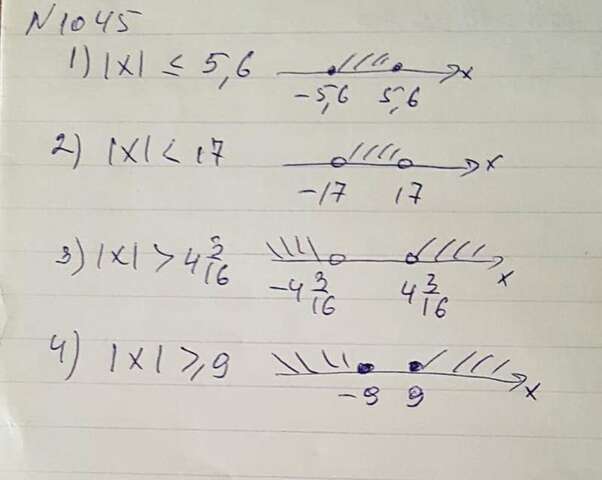 N1045
1) |x| ≤ 5,6 x
-5,6 5,6
2) |x| < 17 x
-17 17
3) |x| > 4 3/16 x
-4 3/16 4 3/16
4) |x| ≥ 9 x
-9 9